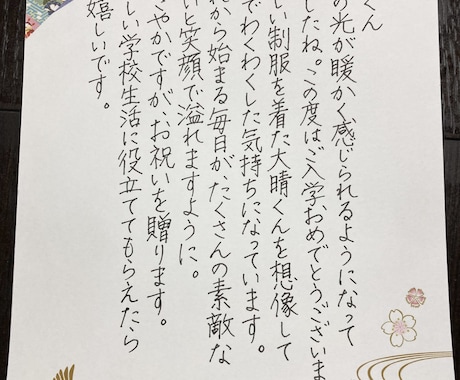 くん
の光が暖かく感じられるようになって
したね。この度はご入学おめでとうございま
しい制服を着た大晴くんを想像して
でわくわくした気持ちになっています。
れから始まる毎日が、たくさんの素敵な
いと笑顔で溢れますように。
さやかですが、お祝いを贈ります。
しい学校生活に役立ててもらえたら
嬉しいです。